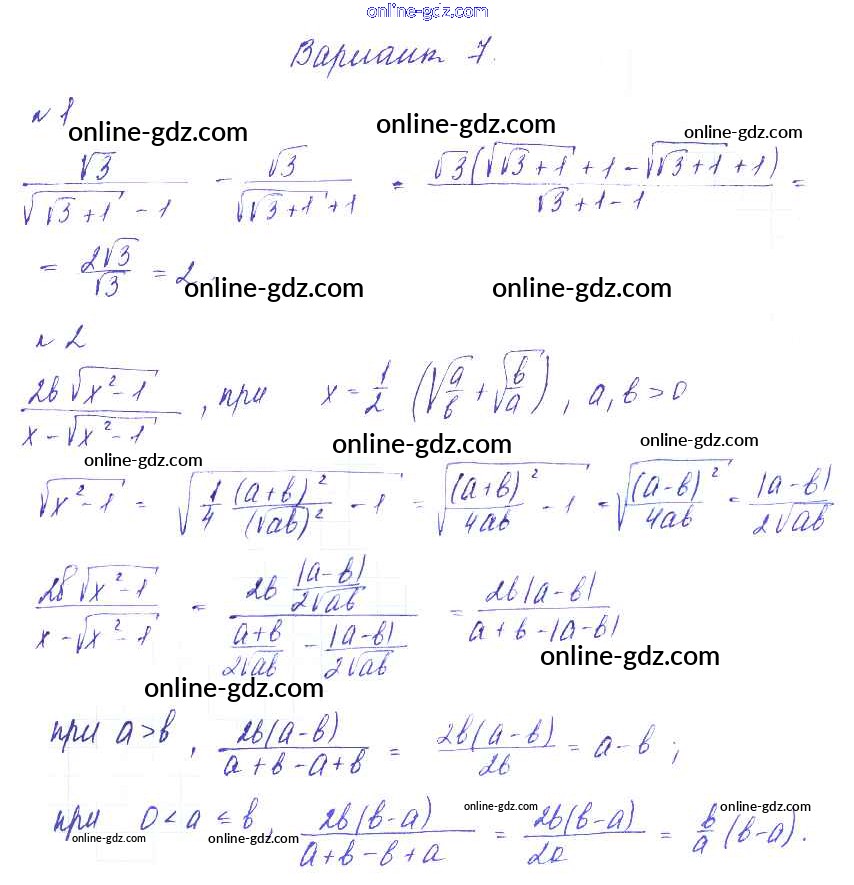 online-gdz.com
Вариант 7.
№ 1
online-gdz.com online-gdz.com online-gdz.com
√3/(√(√3+1) - 1) - √3/(√(√3+1) + 1) = √3(√(√3+1) + 1 - √(√3+1) + 1)/(√3+1-1) =
= 2√3/√3 = 2
online-gdz.com online-gdz.com
№ 2
2b√(x²-1)/(x-√(x²-1)), при x = 1/2 (√(a/b) + √(b/a)), a, b > 0
online-gdz.com online-gdz.com online-gdz.com
√(x²-1) = √(1/4 (a+b)²/(√ab)² - 1) = √((a+b)²/4ab - 1) = √((a-b)²/4ab) = |a-b|/2√ab
2b√(x²-1)/(x-√(x²-1)) = (2b |a-b|/2√ab)/((a+b)/2√ab - |a-b|/2√ab) = 2b|a-b|/(a+b-|a-b|)
online-gdz.com
online-gdz.com
при a>b, 2b(a-b)/(a+b-a+b) = 2b(a-b)/2b = a-b;
online-gdz.com online-gdz.com
при 0<a≤b, 2b(b-a)/(a+b-b+a) = 2b(b-a)/2a = b/a (b-a).
online-gdz.com online-gdz.com